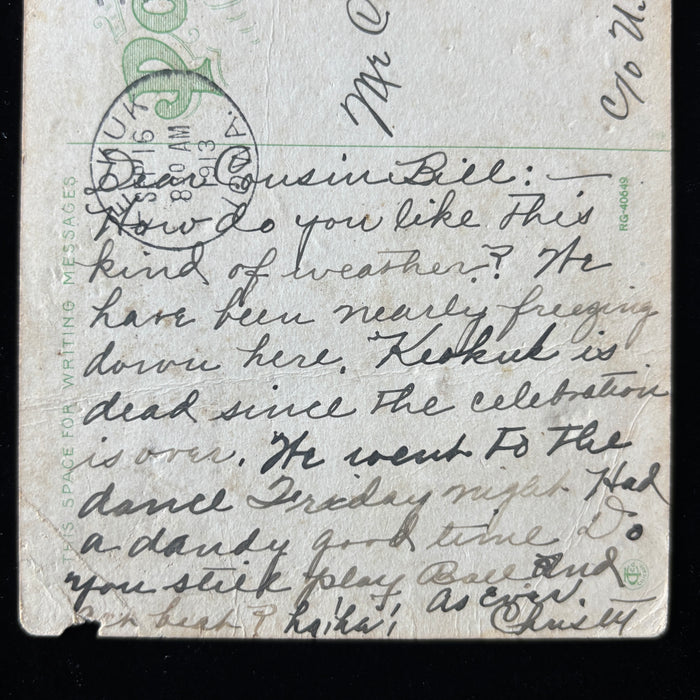 Po
Mr C
C/o U.
KEOKUK
SEP 16
8 30 AM
1913
IOWA.
THIS SPACE FOR WRITING MESSAGES
RG-40649
Dear Cousin Bill: —
How do you like this
kind of weather? We
have been nearly freezing
down here. Keokuk is
dead since the celebration
is over. We went to the
dance Friday night Had
a dandy good time Do
you still play Ball and
get beat? ha! ha!
As Ever
Christ